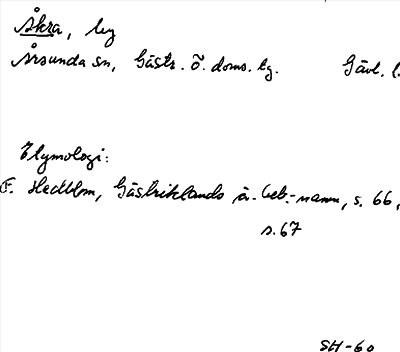 Åkra, by
Årsunda sn, Gästr. ö. doms. tg. Gävl. l.
Etymologi:
F. Hedblom, Gästriklands ä. beb.-namn, s. 66,
s. 67
SH-60